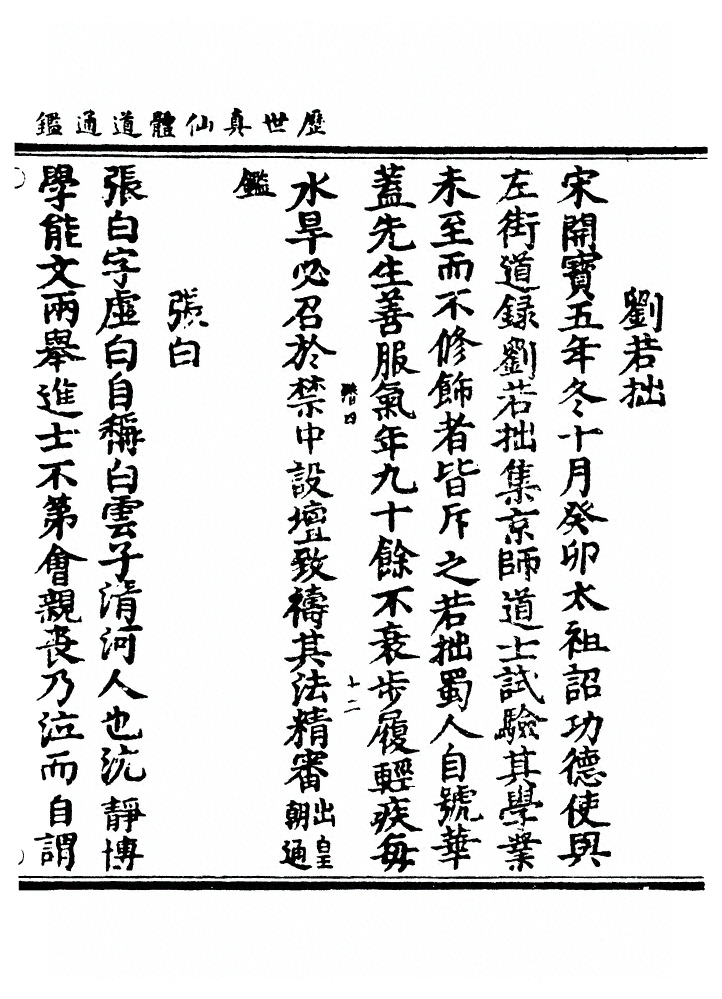 歷世真仙體道通鑑
劉若拙
宋開寶五年冬十月癸卯太祖詔功德使與
左街道録劉若拙集京師道士試驗其學業
未至而不修飾者皆斥之若拙蜀人自號華
蓋先生善服氣年九十餘不衰步履輕疾每
水旱必召於禁中設壇致禱其法精審出皇朝通
鑑
張白
張白字虛白自稱白雲子清河人也沉靜博
學能文兩舉進士不第會親丧乃泣而自謂
十二